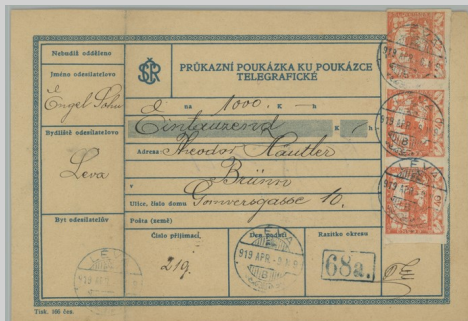 Nebudiž odděleno
Jméno odesílatelovo
Engel Sohn
Bydliště odesílatelovo
Leva
Byt odesílatelův
ČSR
PRŮKAZNÍ POUKÁZKA KU POUKÁZCE
TELEGRAFICKÉ
na 1000 K — h
Eintausend K h
Adresa: Theodor Hautler
v Brünn
Ulice, číslo domu 10.
Pošta (země)
Číslo přijímací.
219.
Den podání
LEVA
919 APR.
Razítko okresu
68a.
LEVA
LEVA
919 APR.
Tisk. 166 čes.